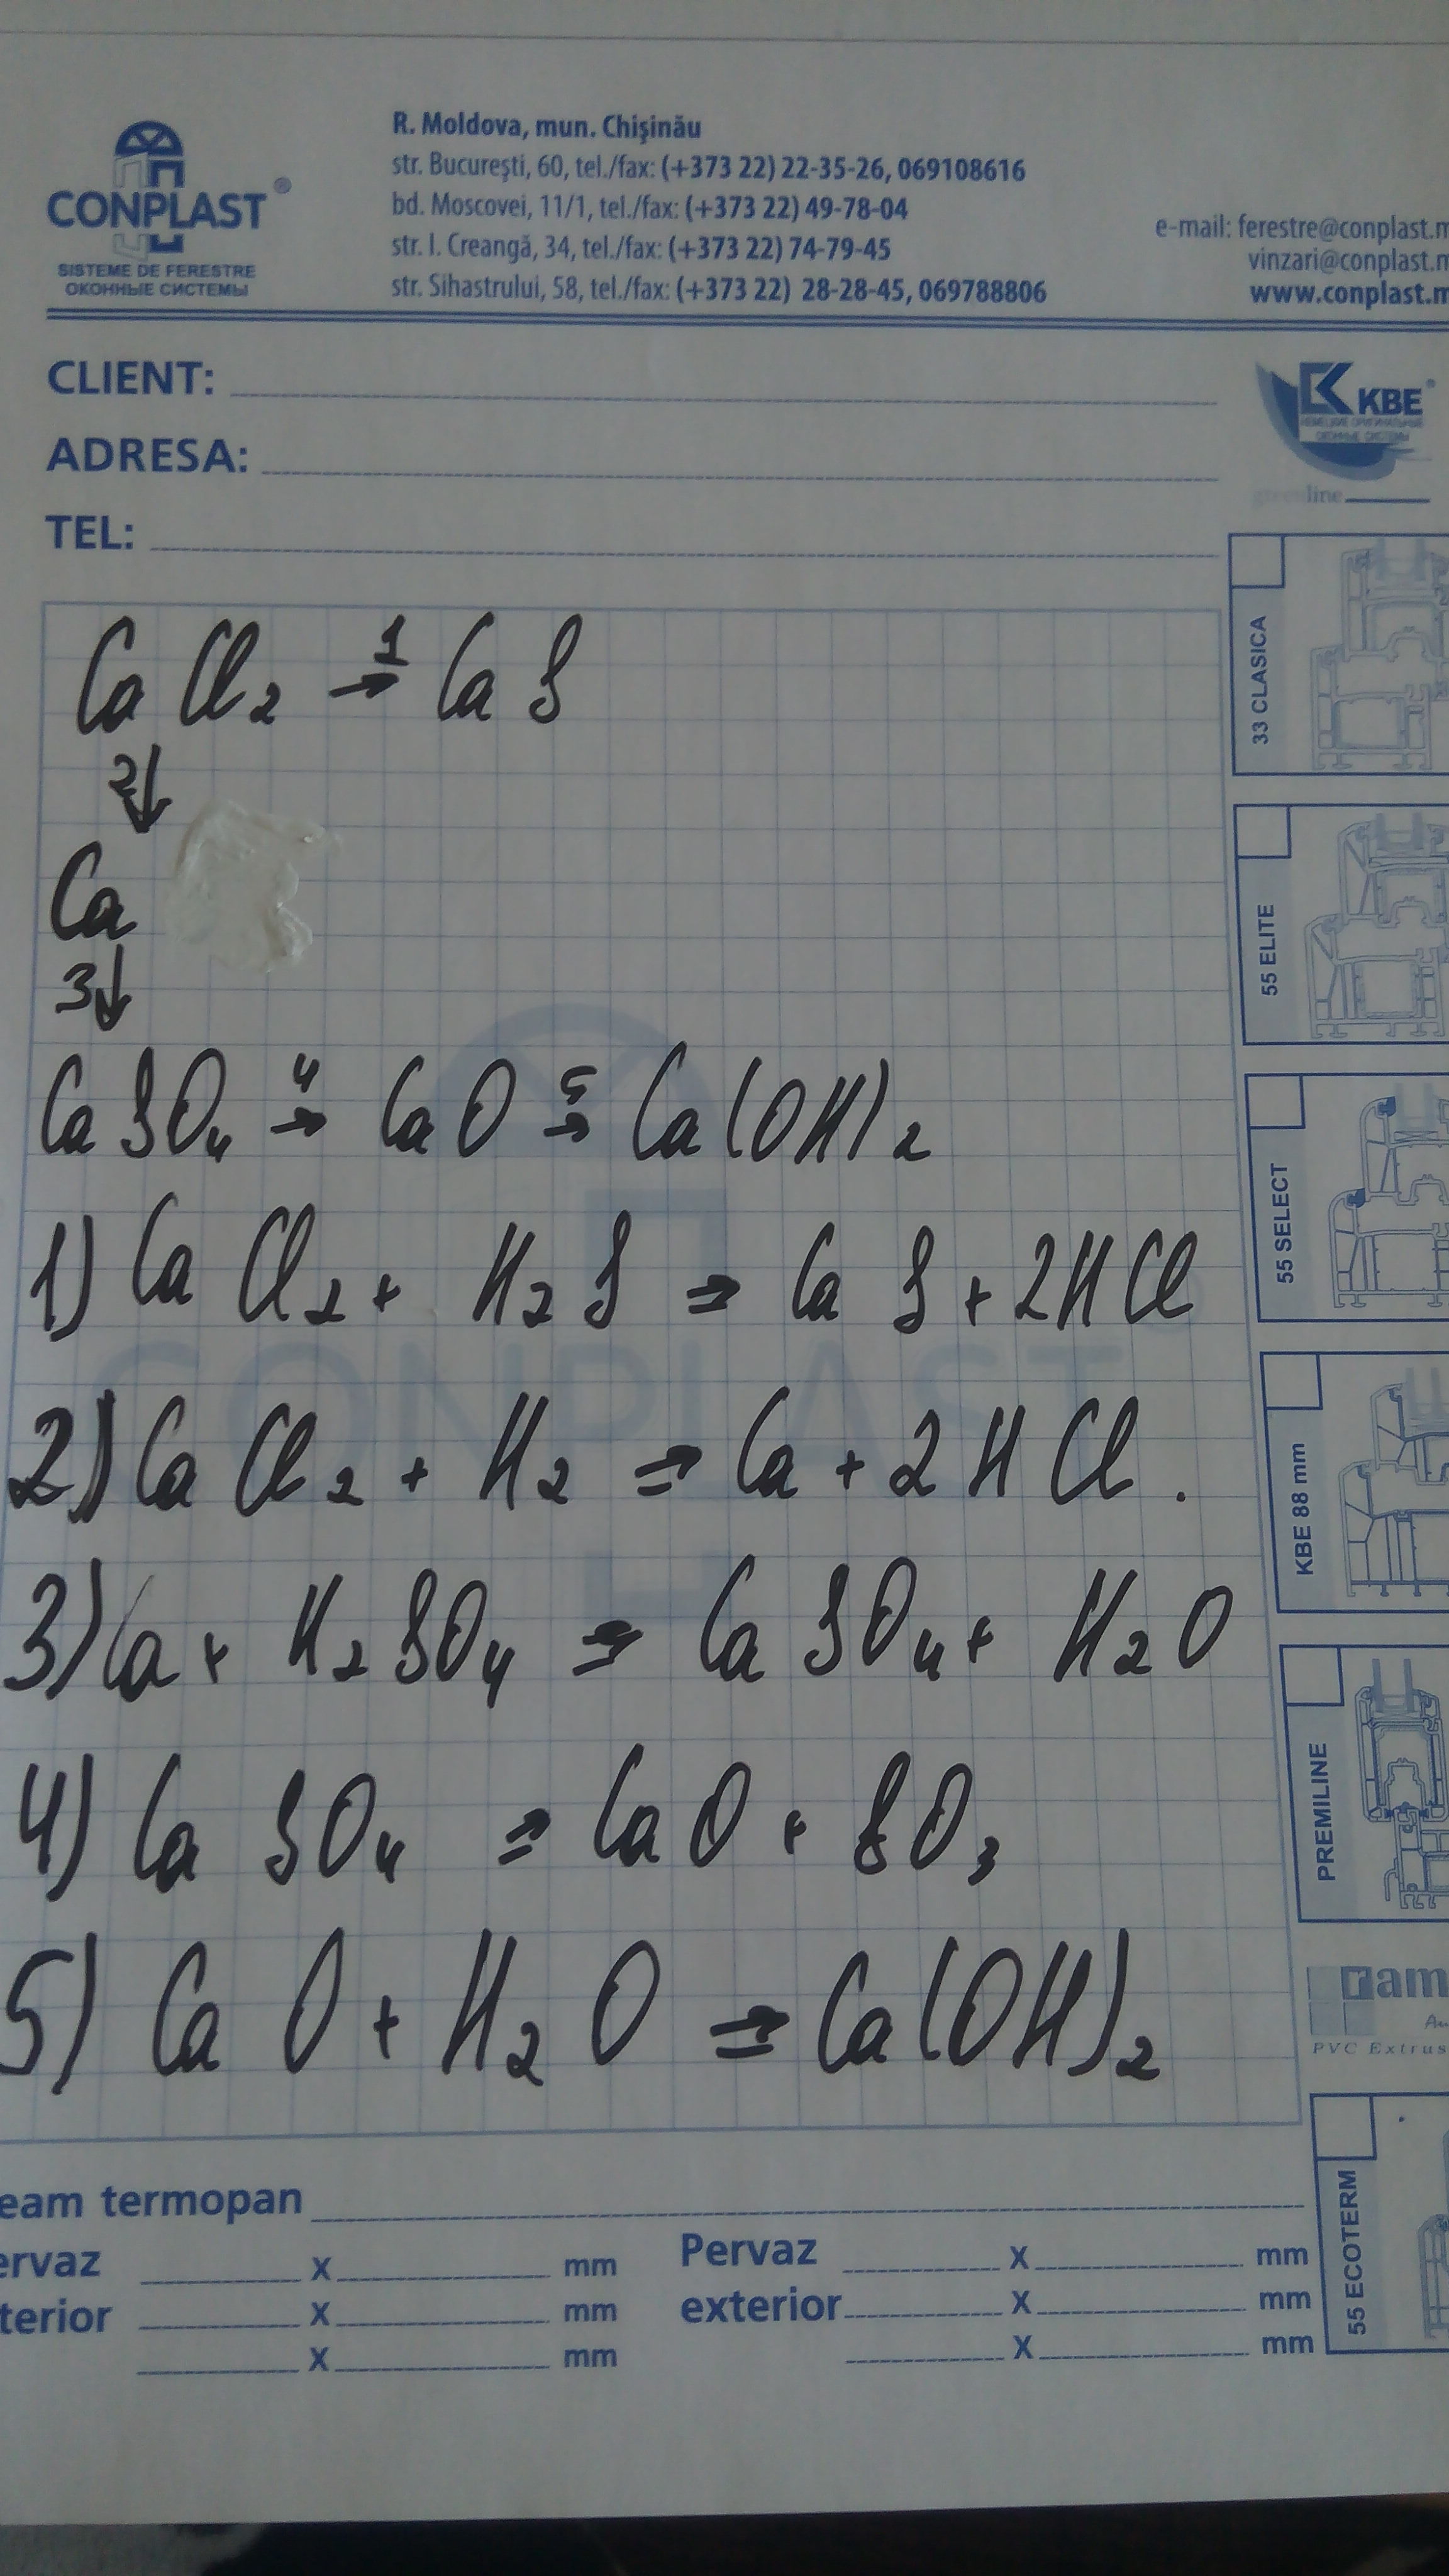 CONPLAST®
SISTEME DE FERESTRE
ОКОННЫЕ СИСТЕМЫ
R. Moldova, mun. Chişinău
str. Bucureşti, 60, tel./fax: (+373 22) 22-35-26, 069108616
bd. Moscovei, 11/1, tel./fax: (+373 22) 49-78-04
str. I. Creangă, 34, tel./fax: (+373 22) 74-79-45
str. Sihastrului, 58, tel./fax: (+373 22) 28-28-45, 069788806
e-mail: ferestre@conplast.m
vinzari@conplast.m
www.conplast.m
CLIENT:
ADRESA:
TEL:
KBE®
НЕМЕЦКИЕ ОРИГИНАЛЬНЫЕ
ОКОННЫЕ СИСТЕМЫ
greenline
CaCl₂ 1→ CaS
2↓
Ca
3↓
CaSO₄ 4→ CaO 5→ Ca(OH)₂
1) CaCl₂ + H₂S ⇒ CaS + 2HCl
2) CaCl₂ + H₂ ⇒ Ca + 2HCl.
3) Ca + H₂SO₄ ⇒ CaSO₄ + H₂O
4) CaSO₄ ⇒ CaO + SO₃
5) CaO + H₂O ⇒ Ca(OH)₂
CONPLAST
33 CLASICA
55 ELITE
55 SELECT
KBE 88 mm
PREMILINE
ram
PVC Extrus
55 ECOTERM
eam termopan
ervaz X mm
terior X mm
X mm
Pervaz X mm
exterior X mm
X mm